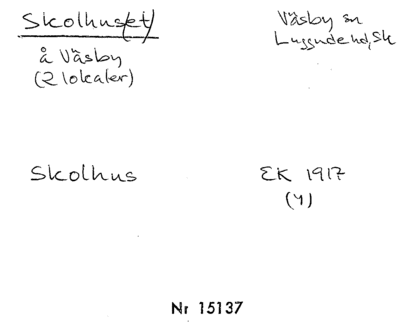 Skolhus(et)
å Väsby
(2 lokaler)
Väsby sn
Luggude hd, Sk
Skolhus
EK 1917
(4)
Nr 15137